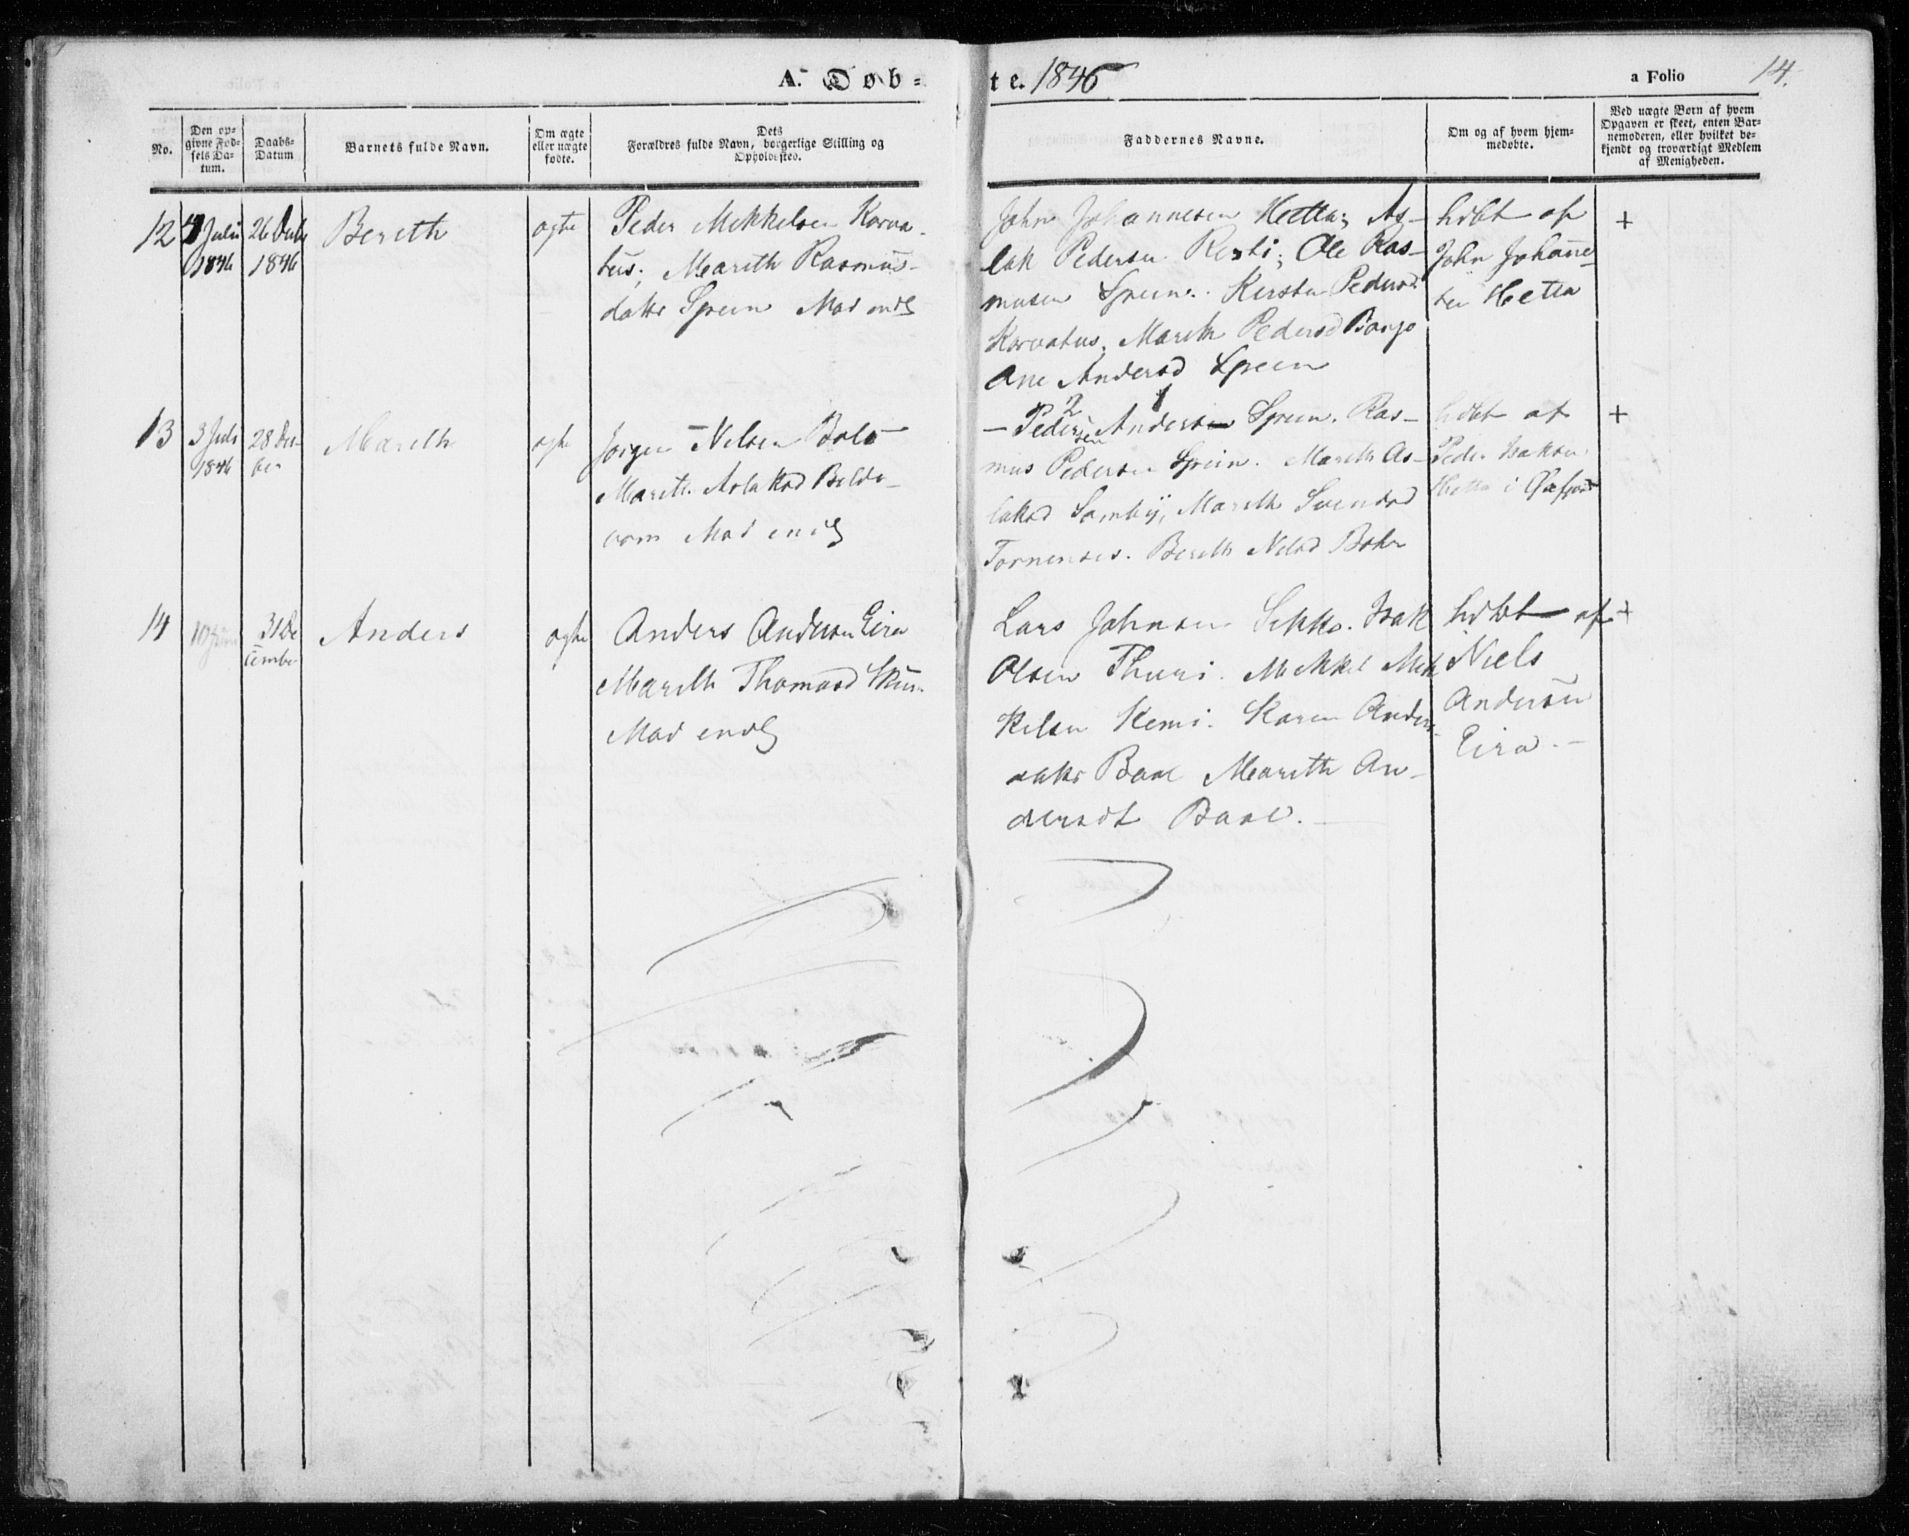 A. Døb-
te. 1846
a Folio 14.
No.
Den op-
givne Fød-
sels Da-
tum.
Daabs-
Datum
Barnets fulde Navn.
Om ægte
eller uægte
fødte.
Dets
Forældres fulde Navn, borgerlige Stilling og
Opholdssted.
Faddernes Navne.
Om og af hvem hjem-
medøbte.
Ved uægte Børn af hvem
Opgaven er skeet, enten Bar-
nemoderen, eller hvilket be-
kjendt og troværdigt Medlem
af Menigheden.
12
Juli
1846
26
1846
Bereth
ægte
Peder Mikkelsen Korva-
tus; Mareth Rasmus-
datter Spein
John Johannesen Hetta; As-
lak Pedersen Resti; Ole Ras-
musen Spein. Kirsten Pedersd
Korvatus. Mareth Pedersd Bongo
Ane Andersd Spein
hdbt af
John Johanne-
sen Hetta
+
13
3 Juli
1846
28 De-
ber
Mareth
ægte
Jørgen Nilsen Bals
Mareth Aslaksd Beldo-
vom
2 1
- Peder Andersen Spein. Ras-
sen
mus Pedersen Spein. Mareth As-
laksd Somby, Mareth Svendsd
Tornensis. Bereth Nilsd
hdbt af
Peder Isaksen
Hetta i
+
14
31 De
cember
Anders
ægte
Anders Andersen Eira
Mareth Thomasd
Lars Johnsen Sikko. Isak
Olsen Thuri. Mikkel Mik
kelsen Kemi. Karen Anders-
datter Baal Mareth An-
dersdt Baal.
hdbt af
Niels
Andersen
Eira.
+